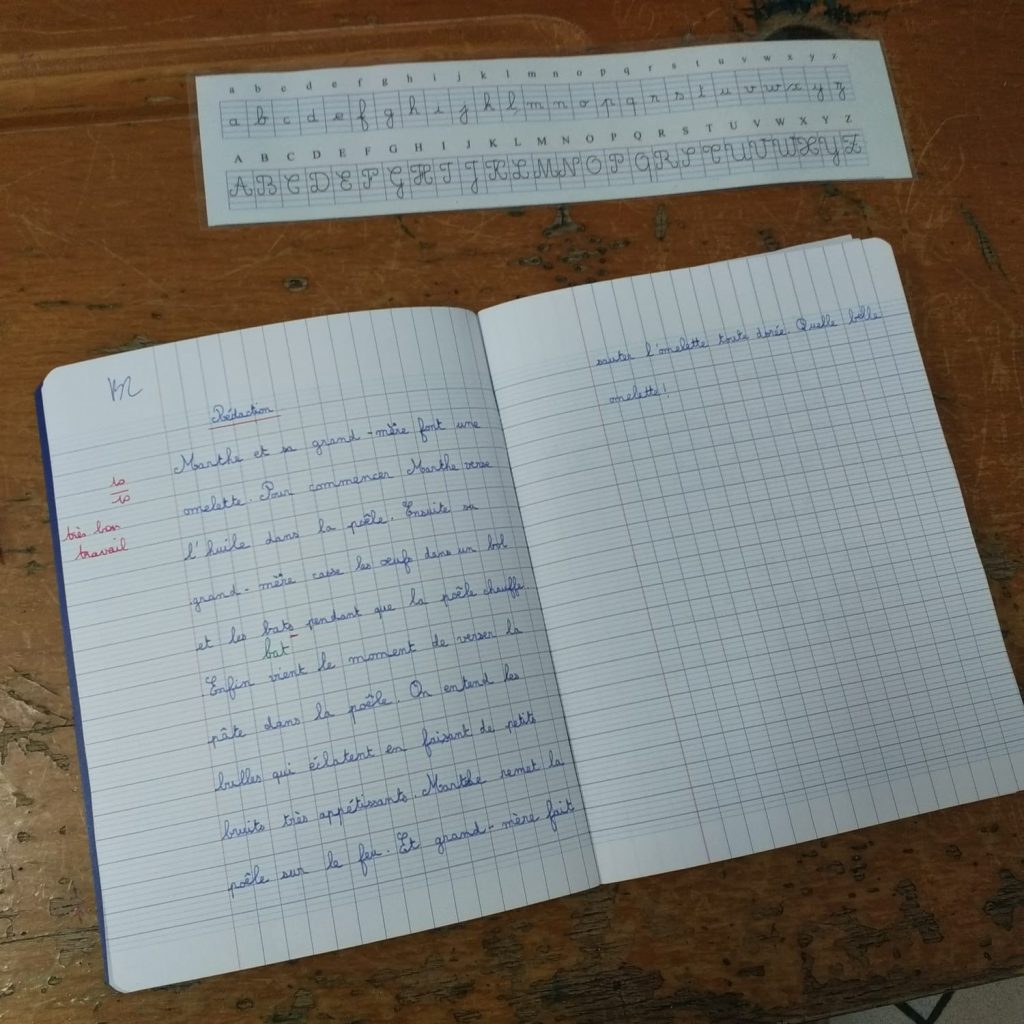 a b c d e f g h i j k l m n o p q r s t u v w x y z
a b c d e f g h i j k l m n o p q r s t u v w x y z
A B C D E F G H I J K L M N O P Q R S T U V W X Y Z
A B C D E F G H I J K L M N O P Q R S T U V W X Y Z
Rédaction
10
10
très bon
travail
Marthe et sa grand-mère font une
omelette. Pour commencer Marthe verse
l'huile dans la poêle. Ensuite sa
grand-mère casse les œufs dans un bol
et les bats pendant que la poêle chauffe.
bat
Enfin vient le moment de verser la
pâte dans la poêle. On entend les
bulles qui éclatent en faisant de petits
bruits très appétissants. Marthe remet la
poêle sur le feu. Et grand-mère fait
sauter l'omelette toute dorée. Quelle belle
omelette!